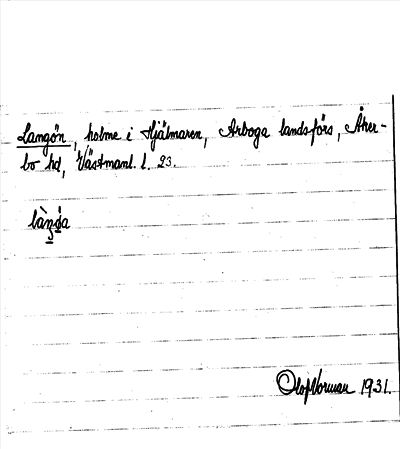 Langön, holme i Hjälmaren, Arboga landsförs, Åker-
bo hd, Västmanl. l. 23.
Olof Norman 1931.